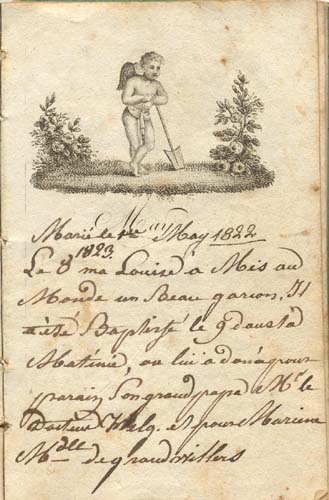 Marié le 1er au May 1822
1823.
Le 8 ma Louise à Mis au
Monde un Beau garçon, Il
a été Baptersé le 9 d'aust à
Matiné, on lui a doné pour
parain, Son grand papa Mr. le
Docteur Helg. et pour Mariene
Mdlle de grandvillers